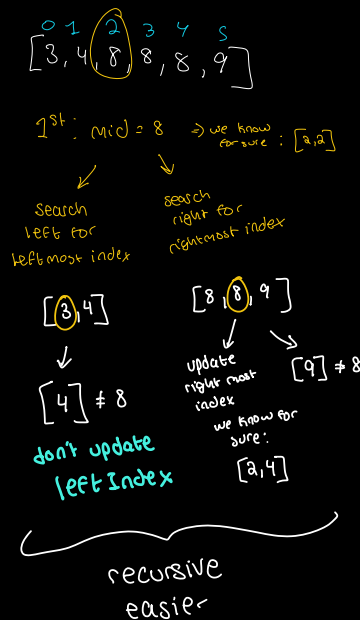 0 1 2 3 4 5
[3,4,8,8,8,9]
1st: mid = 8 => we know for sure : [2,2]
search left for leftmost index
search right for rightmost index
[3,4]
[8,8,9]
[4] ≠ 8
don't update left Index
update right most index
we know for sure:
[2,4]
[9] ≠ 8
recursive
easier